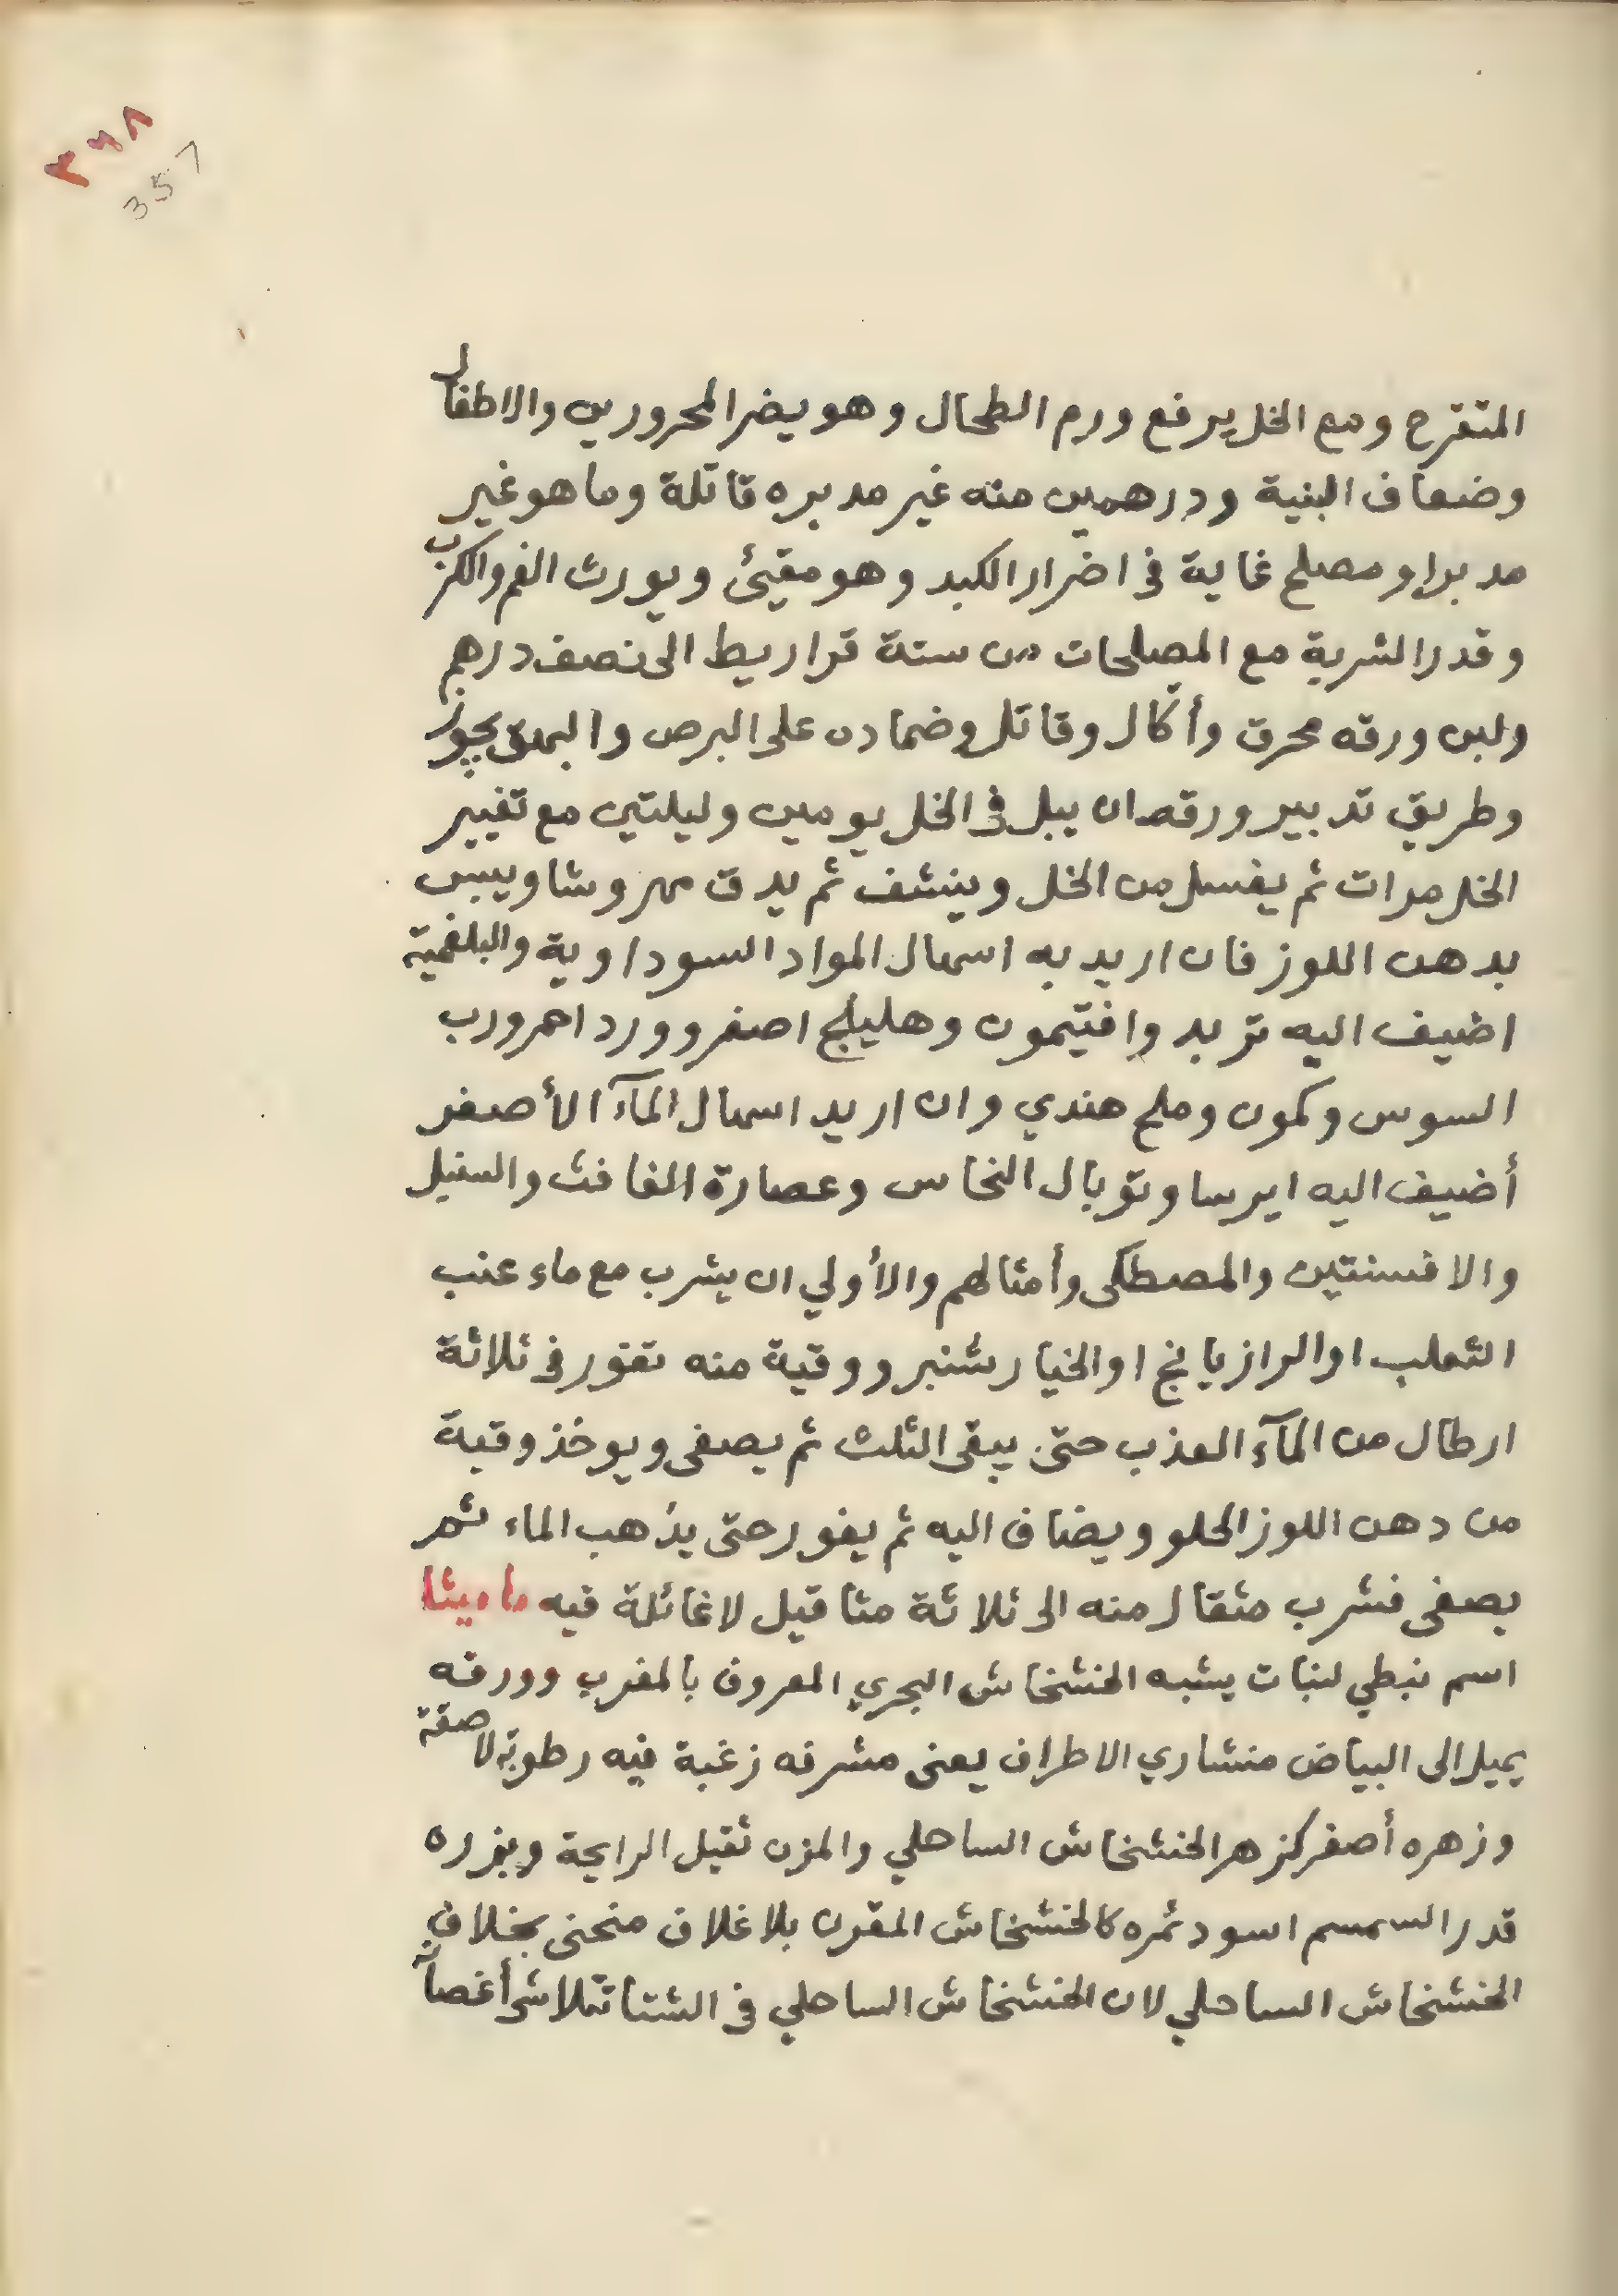 ٣٦٨
357
المتقرح ومع الخل يرفع ورم الطحال وهو يضر المحرورين والاطفال
وضعاف البنية ودرهمين منه غير مدبره قاتلة وما هو غير
مدبر او مصلح غاية في اضرار الكبد وهو مقيئ ويورث الغم والكرب
وقدر الشربة مع المصلحات من ستة قراريط الى نصف درهم
ولبن ورقه محرق وأكّال وقاتل وضماده على البرص والبهق يجوز
وطريق تدبير ورقه ان يبل في الخل يومين وليلتين مع تغيير
الخل مرات ثم يغسل من الخل وينشف ثم يدق مهروشا ويبس
بدهن اللوز فان اريد به اسهال المواد السوداوية والبلغمية
اضيف اليه تربد وافتيمون وهليلج اصفر وورد احمر ورب
السوس وكمون وملح هندي وان اريد اسهال المآء الأصفر
أضيف اليه ايرسا وتوبال النحاس وعصارة الغافث والسنبل
والافسنتين والمصطكى وأمثالهم والأولي ان يشرب مع ماء عنب
الثعلب او الرازيانج او الخيار شنبر ووقية منه تفور في ثلاثة
ارطال من المآء العذب حتى يبقى الثلث ثم يصفى ويوخذ وقية
من دهن اللوز الحلو ويضاف اليه ثم يفور حتى يذهب الماء ثم
يصفى فشرب مثقال منه الى ثلاثة مثاقيل لا غائلة فيه ماميثا
اسم نبطي لنبات يشبه الخشخاش البحري المعروف بالمغرب وورقه
يميل الى البياض منشاري الاطراف يعنى مشرفه زغبة فيه رطوبة لاصقة
وزهره أصفر كزهر الخشخاش الساحلي والمزن ثقيل الرايحة وبزره
قدر السمسم اسود ثمره كالخشخاش المقرن بلا غلاف منحنى بخلاف
الخشخاش الساحلي لان الخشخاش الساحلي في الشتا تتلاشى أغصانه